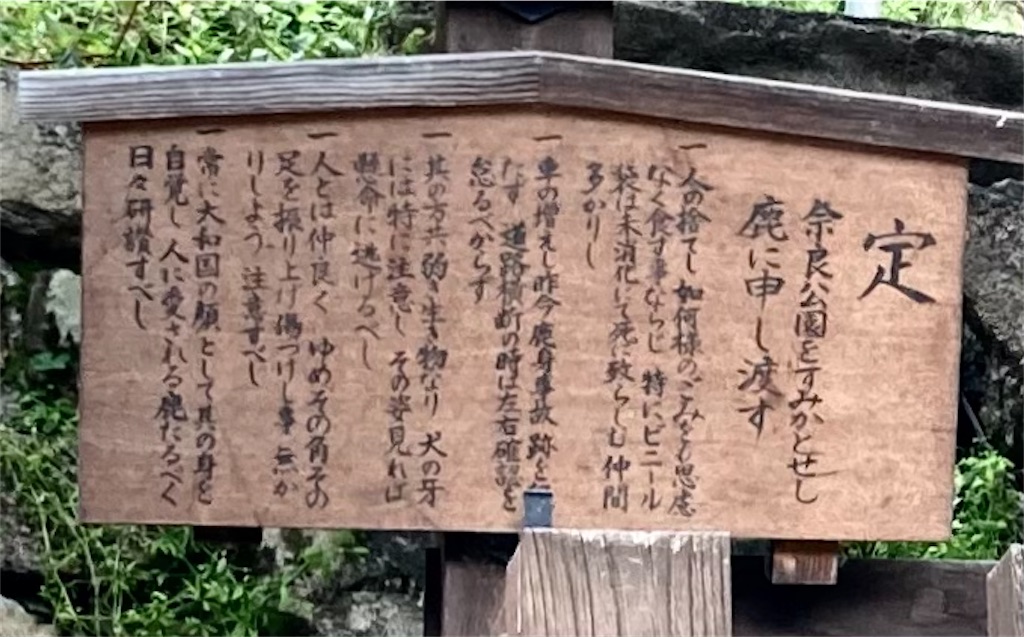 定
奈良公園をすみかとせし
鹿に申し渡す
一 人の捨てし 如何様のごみをも思慮
なく食す事ならじ 特にビニール
袋は未消化にて死に致らしむ 仲間
多かりし
一 車の増えし昨今 鹿身事故 跡を
たたず 道路横断の時は左右確認を
怠るべからず
一 其の方共 弱き生き物なり 犬の牙
には特に注意し その姿見れば
懸命に逃げるべし
一 人とは仲良く ゆめその角その
足を振り上げ傷つけし事 無か
りしよう 注意すべし
一 常に大和国の顔として其の身を
自覚し 人に愛される鹿たるべく
日々研讃すべし